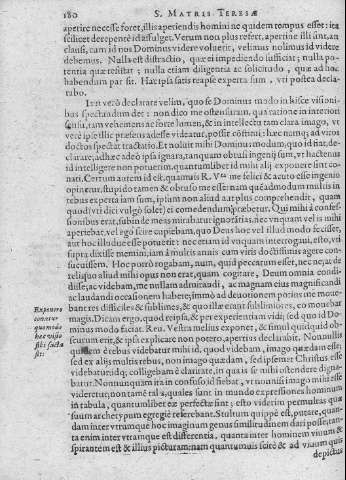 180 S. MATRIS TERESÆ
aperire necesse foret, illis aperiendis homini ne quidem tempus esset: ita
scilicet derepentè id affulget. Verum non plus refert, apertine illi sint, an
clausi, cum id nos Dominus videre voluerit, velimus nolimus id videre
debemus. Nulla est distractio, quæ ei impediendo sufficiat; nulla po-
tentia quæ resistat; nulla etiam diligentia ac solicitudo, quæ ad hoc
habendum par sit. Hæc ipsa satis reapse experta sum, vti postea decla-
rabo.
Iam verò declarare velim, quo se Dominus modo in hisce visioni-
bus spectandum det: non dico me ostensuram, qua ratione in interiori
sensu, tam vehemens ac forte lumen, & in intellectu tam clara imago, vt
verè ipse illic præsens adesse videatur, possit constitui: hæc namque ad viros
doctos spectat tractatio. Et noluit mihi Dominus modum, quo id fiat, de-
clarare, adhæc adeò ipsa ignara, tamquam obtusi ingenij sum, vt hactenus
id intelligere non potuerim, quantumlibet id mihi alij exponere sint cona-
ti. Certum autem id est, quamuis R. V.ra me felici & acuto esse ingenio
opinetur, stupido tamen & obtuso me esse: nam quæadmodum multis in
rebus experta iam sum, ipsum non aliud aut plus comprehendit, quam
quod (vti dici vulgò solet) ei comedendum præbetur. Qui mihi à confes-
sionibus erat, subinde meas mirabatur ignorantias, nec vnquam vel is mihi
aperiebat, vel ego scire cupiebam, quo Deus hoc vel illud modo fecisset,
aut hoc illudue esse potuerit: nec etiam id vnquam interrogaui, etsi, vti
supra dixisse memini, iam à multis annis cum viris doctissimis agere con-
sueuissem. Hoc porrò rogabam, num, quid peccatum esset, nec ne; at de
reliquo aliud mihi opus non erat, quam cogitare, Deum omnia condi-
disse; ac videbam, me nullam admirandi, ac magnam eius magnificandi
ac laudandi occasionem habere; immò ad deuotionem potius me moue-
bant res difficiles & sublimes, & quo illæ erant sublimiores, eo mouebar
magis. Dicam ergo, quod reipsa, & per experientiam vidi; sed quo id Do-
minus modo faciat, Reu. Vestra melius exponet, & simul quidquid ob-
scurum erit, & ipsa explicare non potero, apertius declarabit. Nonnullis
quidem è rebus videbatur mihi id, quod videbam, imago quædam esse;
sed ex alijs multis rebus, non imago quædam, sed ipsemet Christus esse
videbatur: idq; colligebam è claritate, in qua is se mihi ostendere digna-
batur. Nonnunquam ita in confuso id fiebat, vt nonnisi imago mihi esse
videretur, non tamen talis, quales sunt in mundo expressiones hominum
in tabula, quantumlibet eæ perfectæ sint; etsi viderim permultas quæ
suum archetypum egregiè referebant. Stultum quippe est, putare, quan-
dam inter vtrumque hoc imaginum genus similitudinem dari posse: tan-
ta enim inter vtramque est differentia, quanta inter hominem viuum &
spirantem est & illius picturam: nam quantumuis scitè & ad viuum quis
depictus
Exponere
conatur
quomodo
hæc visio
sibi facta
sit: